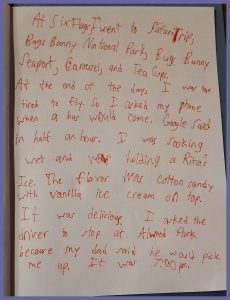 At Six Flags I went to Safari Trip,
Bugs Bunny National Park, Bugs Bunny
Seaport, Carousel, and Tea Cups.
At the end of the day, I was too
tired to fly. So I asked my phone
when a bus would come. Google said
in half an hour. I was soaking
wet and holding a Rita's
Ice. The flavor was cotton candy
with vanilla ice cream on top.
It was delicious. I asked the
driver to stop at Alwood Park
because my dad said he would pick
me up. It was :00 pm.